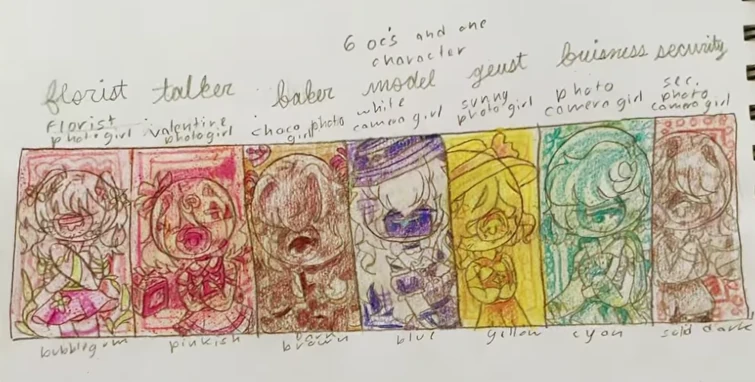 6 oc's and one
character
florist talker baker model geust buisness security
florist
photo girl
valentine
photo girl
choco photo
girl
white
camera girl
sunny
photo girl
photo
camera girl
sec.
photo
camera girl
bubblegum pinkish brown blue yellow cyan solid dark